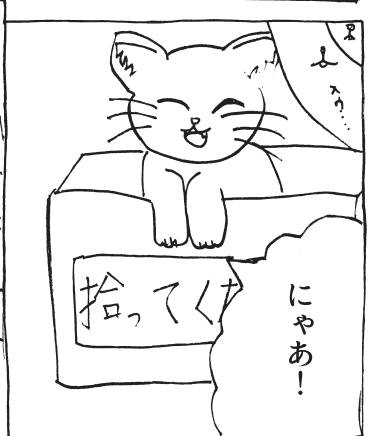 スゥ…
拾ってく
にゃあ！